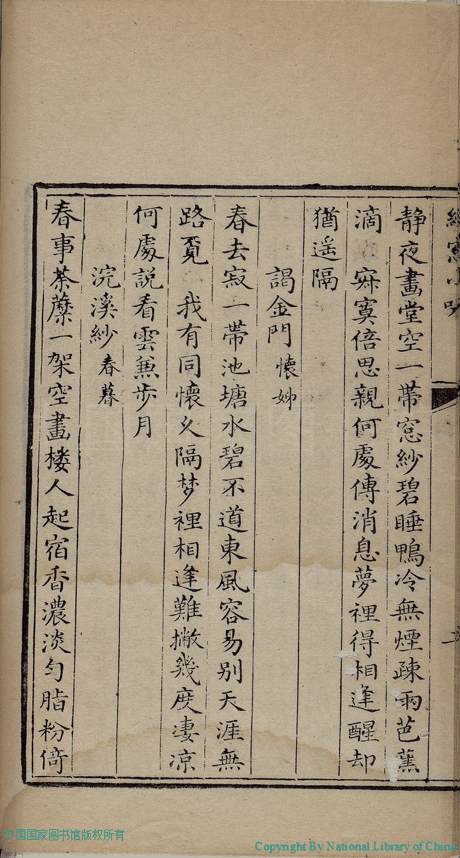 靜夜畫堂空一帶窓紗碧睡鴨冷無煙疎雨芭蕉
滴　寂寞倍思親何處傳消息夢裡得相逢醒却
猶遥隔
謁金門 懷姊
春去寂一帶池塘水碧不道東風容易別天涯無
路覓　我有同懷久隔梦裡相逢難撇幾度凄凉
何處說看雲兼步月
浣溪紗 春暮
春事荼蘼一架空畫楼人起宿香濃淡勻脂粉倚
中国国家图书馆版权所有
Copyright By National Library of China